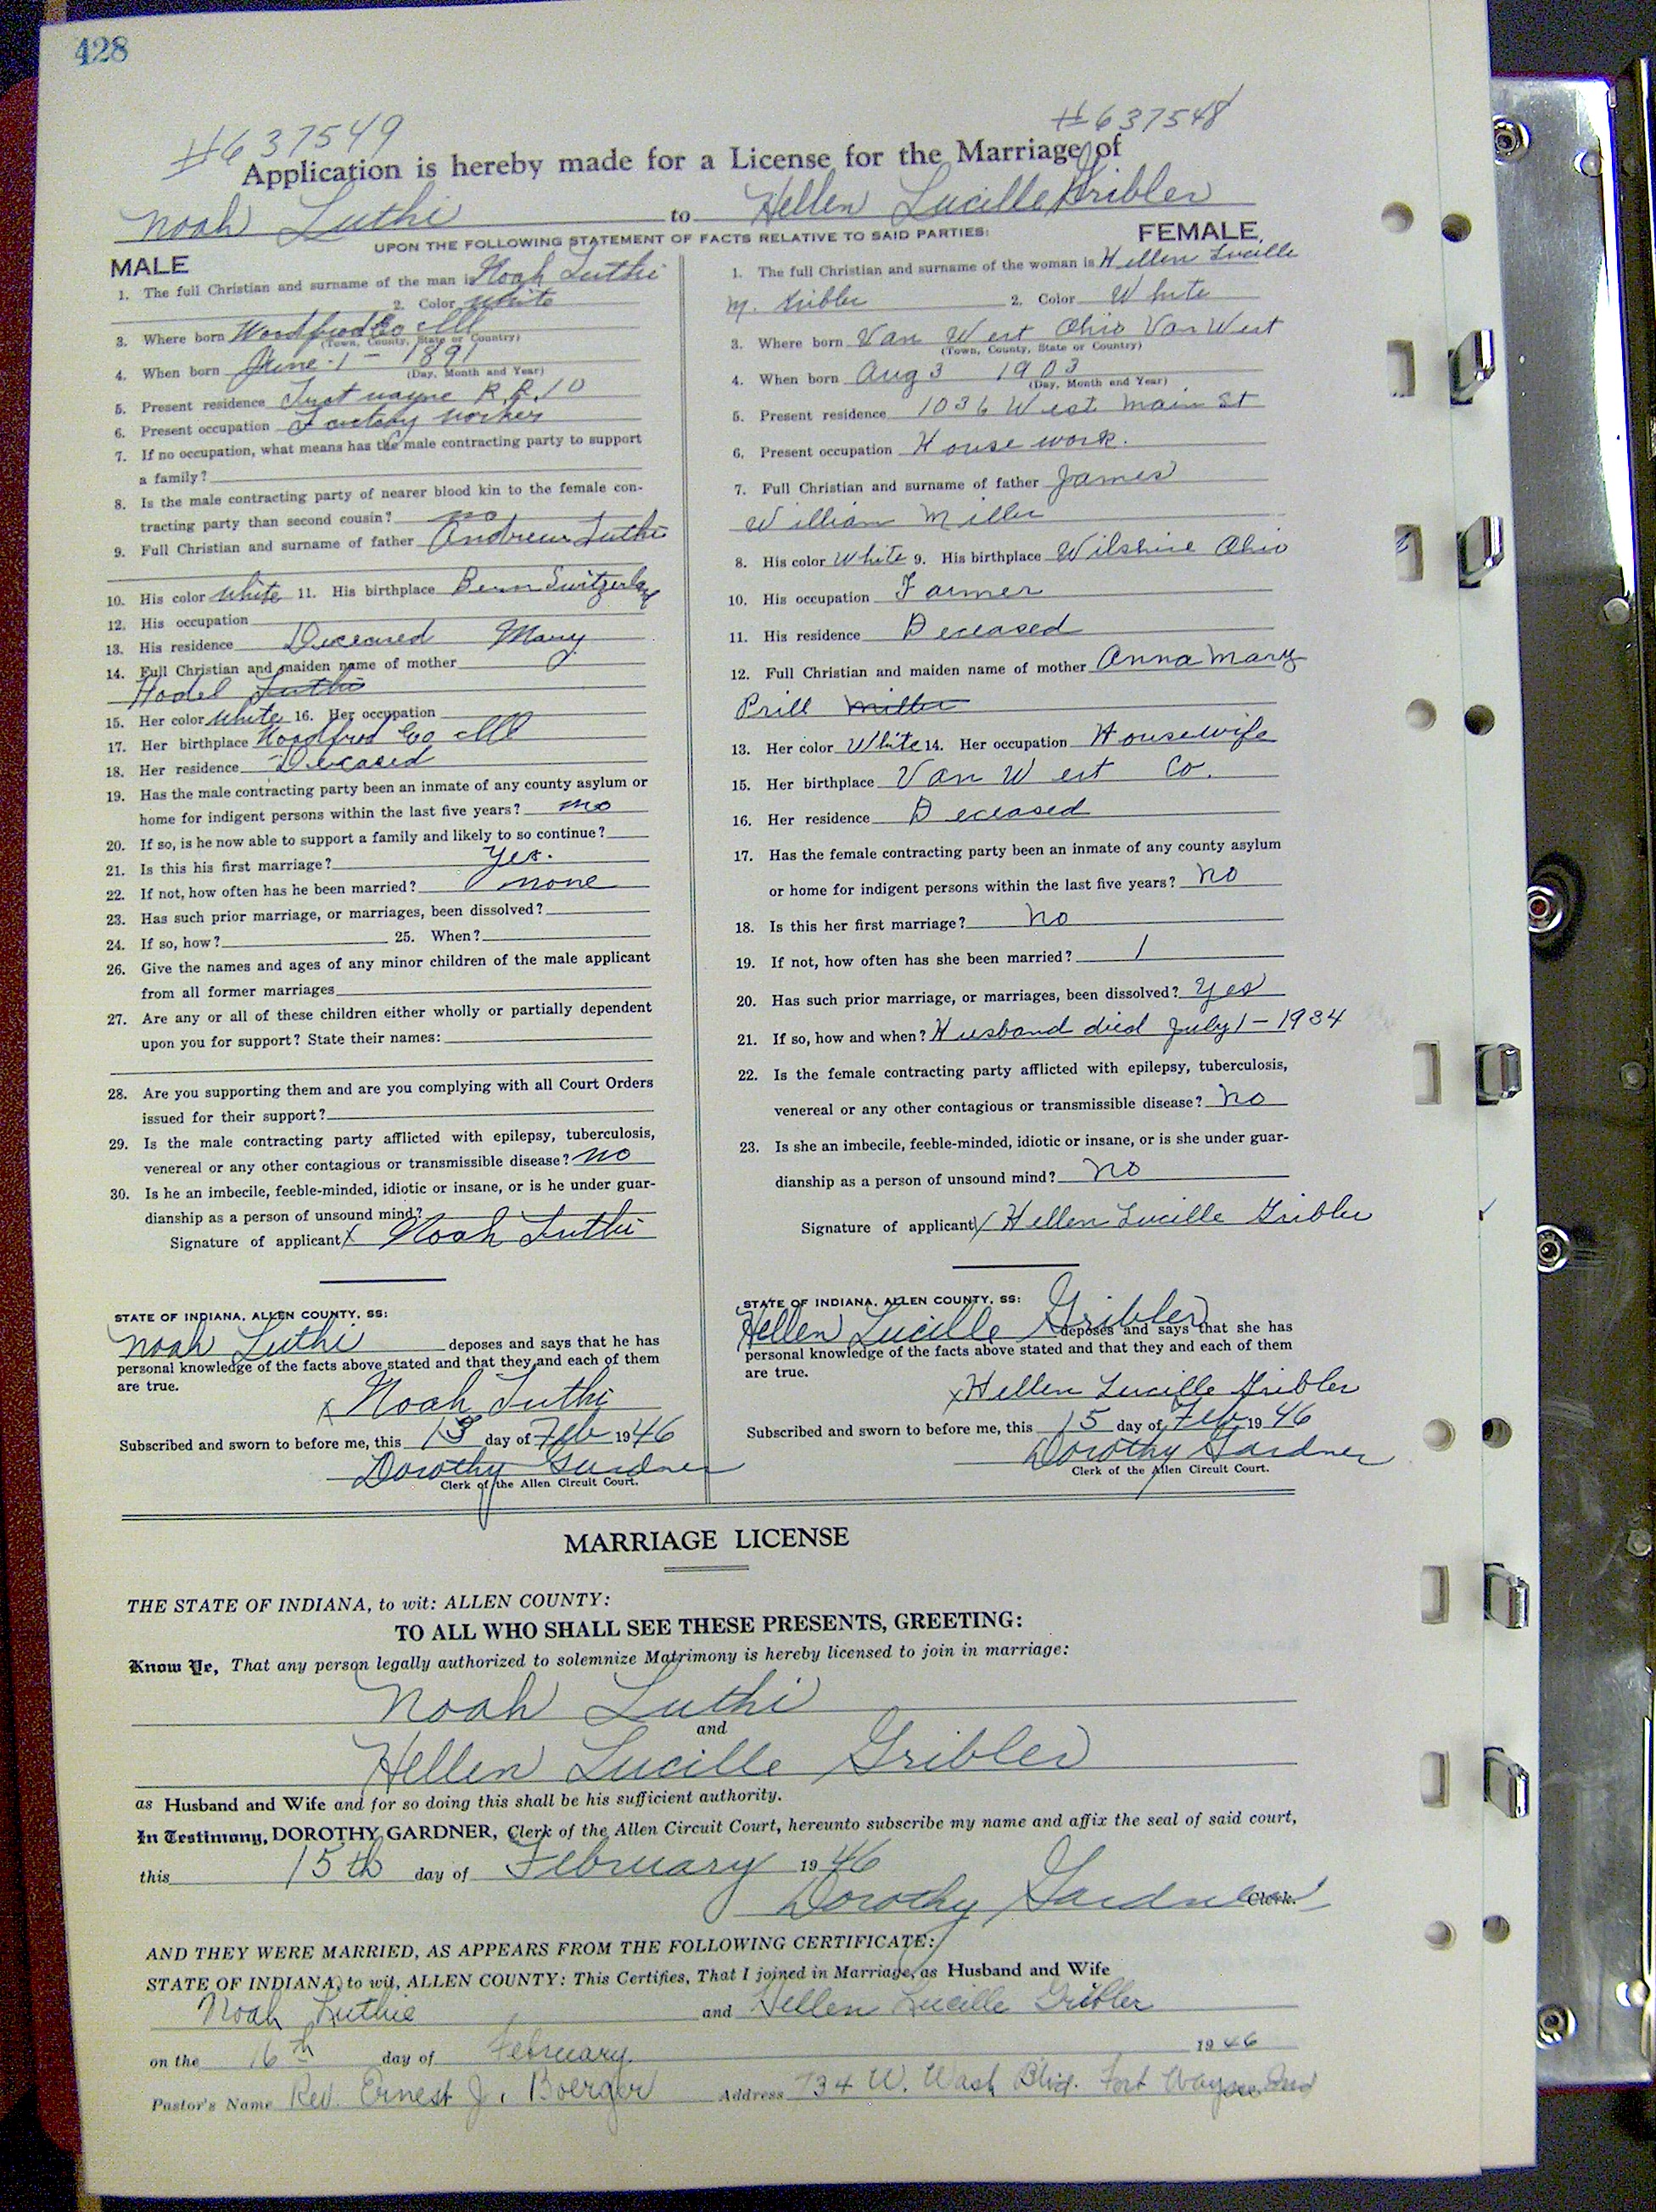 428
#637549
#637548
Application is hereby made for a License for the Marriage of
Noah Luthi to Hellen Lucille Gribler
UPON THE FOLLOWING STATEMENT OF FACTS RELATIVE TO SAID PARTIES:
MALE
1. The full Christian and surname of the man is Noah Luthi
2. Color White
3. Where born Woodford Co Ill
(Town, County, State or Country)
4. When born June-1-1891
(Day, Month and Year)
5. Present residence Fort Wayne R.R.10
6. Present occupation Factory Worker
7. If no occupation, what means has the male contracting party to support
a family?
8. Is the male contracting party of nearer blood kin to the female con-
tracting party than second cousin? no
9. Full Christian and surname of father Andrew Luthi
10. His color White 11. His birthplace Bern Switzerland
12. His occupation
13. His residence Deceased
14. Full Christian and maiden name of mother Mary
Hodel Luthi
15. Her color White 16. Her occupation
17. Her birthplace Woodford Co Ill
18. Her residence Deceased
19. Has the male contracting party been an inmate of any county asylum or
home for indigent persons within the last five years? no
20. If so, is he now able to support a family and likely to so continue?
21. Is this his first marriage? yes.
22. If not, how often has he been married? none
23. Has such prior marriage, or marriages, been dissolved?
24. If so, how? 25. When?
26. Give the names and ages of any minor children of the male applicant
from all former marriages
27. Are any or all of these children either wholly or partially dependent
upon you for support? State their names:
28. Are you supporting them and are you complying with all Court Orders
issued for their support?
29. Is the male contracting party afflicted with epilepsy, tuberculosis,
venereal or any other contagious or transmissible disease? no
30. Is he an imbecile, feeble-minded, idiotic or insane, or is he under guar-
dianship as a person of unsound mind?
Signature of applicant X Noah Luthi
STATE OF INDIANA, ALLEN COUNTY, SS:
Noah Luthi deposes and says that he has
personal knowledge of the facts above stated and that they and each of them
are true.
X Noah Luthi
Subscribed and sworn to before me, this day of Feb 1946
Dorothy Gardner
Clerk of the Allen Circuit Court.
FEMALE
1. The full Christian and surname of the woman is Hellen Lucille
M. Gribler 2. Color White
3. Where born Van West Ohio Van West
(Town, County, State or Country)
4. When born Aug 3 1903
(Day, Month and Year)
5. Present residence 1036 West Main St
6. Present occupation House work.
7. Full Christian and surname of father James
William Miller
8. His color White 9. His birthplace Wilshire Ohio
10. His occupation Farmer
11. His residence Deceased
12. Full Christian and maiden name of mother Anna Mary
Prill Miller
13. Her color White 14. Her occupation Housewife
15. Her birthplace Van West Co.
16. Her residence Deceased
17. Has the female contracting party been an inmate of any county asylum
or home for indigent persons within the last five years? no
18. Is this her first marriage? no
19. If not, how often has she been married? 1
20. Has such prior marriage, or marriages, been dissolved? Yes
21. If so, how and when? Husband died July 1-1934
22. Is the female contracting party afflicted with epilepsy, tuberculosis,
venereal or any other contagious or transmissible disease? no
23. Is she an imbecile, feeble-minded, idiotic or insane, or is she under guar-
dianship as a person of unsound mind? no
Signature of applicant X Hellen Lucille Gribler
STATE OF INDIANA, ALLEN COUNTY, SS:
Hellen Lucille Gribler deposes and says that she has
personal knowledge of the facts above stated and that they and each of them
are true.
X Hellen Lucille Gribler
Subscribed and sworn to before me, this 15 day of Feb 1946
Dorothy Gardner
Clerk of the Allen Circuit Court.
MARRIAGE LICENSE
THE STATE OF INDIANA, to wit: ALLEN COUNTY:
TO ALL WHO SHALL SEE THESE PRESENTS, GREETING:
Know Ye, That any person legally authorized to solemnize Matrimony is hereby licensed to join in marriage:
Noah Luthi
and
Hellen Lucille Gribler
as Husband and Wife and for so doing this shall be his sufficient authority.
In Testimony, DOROTHY GARDNER, Clerk of the Allen Circuit Court, hereunto subscribe my name and affix the seal of said court,
this 15th day of February 1946
Dorothy Gardner Clerk.
AND THEY WERE MARRIED, AS APPEARS FROM THE FOLLOWING CERTIFICATE:
STATE OF INDIANA, to wit, ALLEN COUNTY: This Certifies, That I joined in Marriage, as Husband and Wife
Noah Luthie and Hellen Lucille Gribler
on the 16th day of February. 1946
Pastor's Name Rev. Ernest J. Boerger Address 734 W. Wash Blvd. Fort Wayne Ind